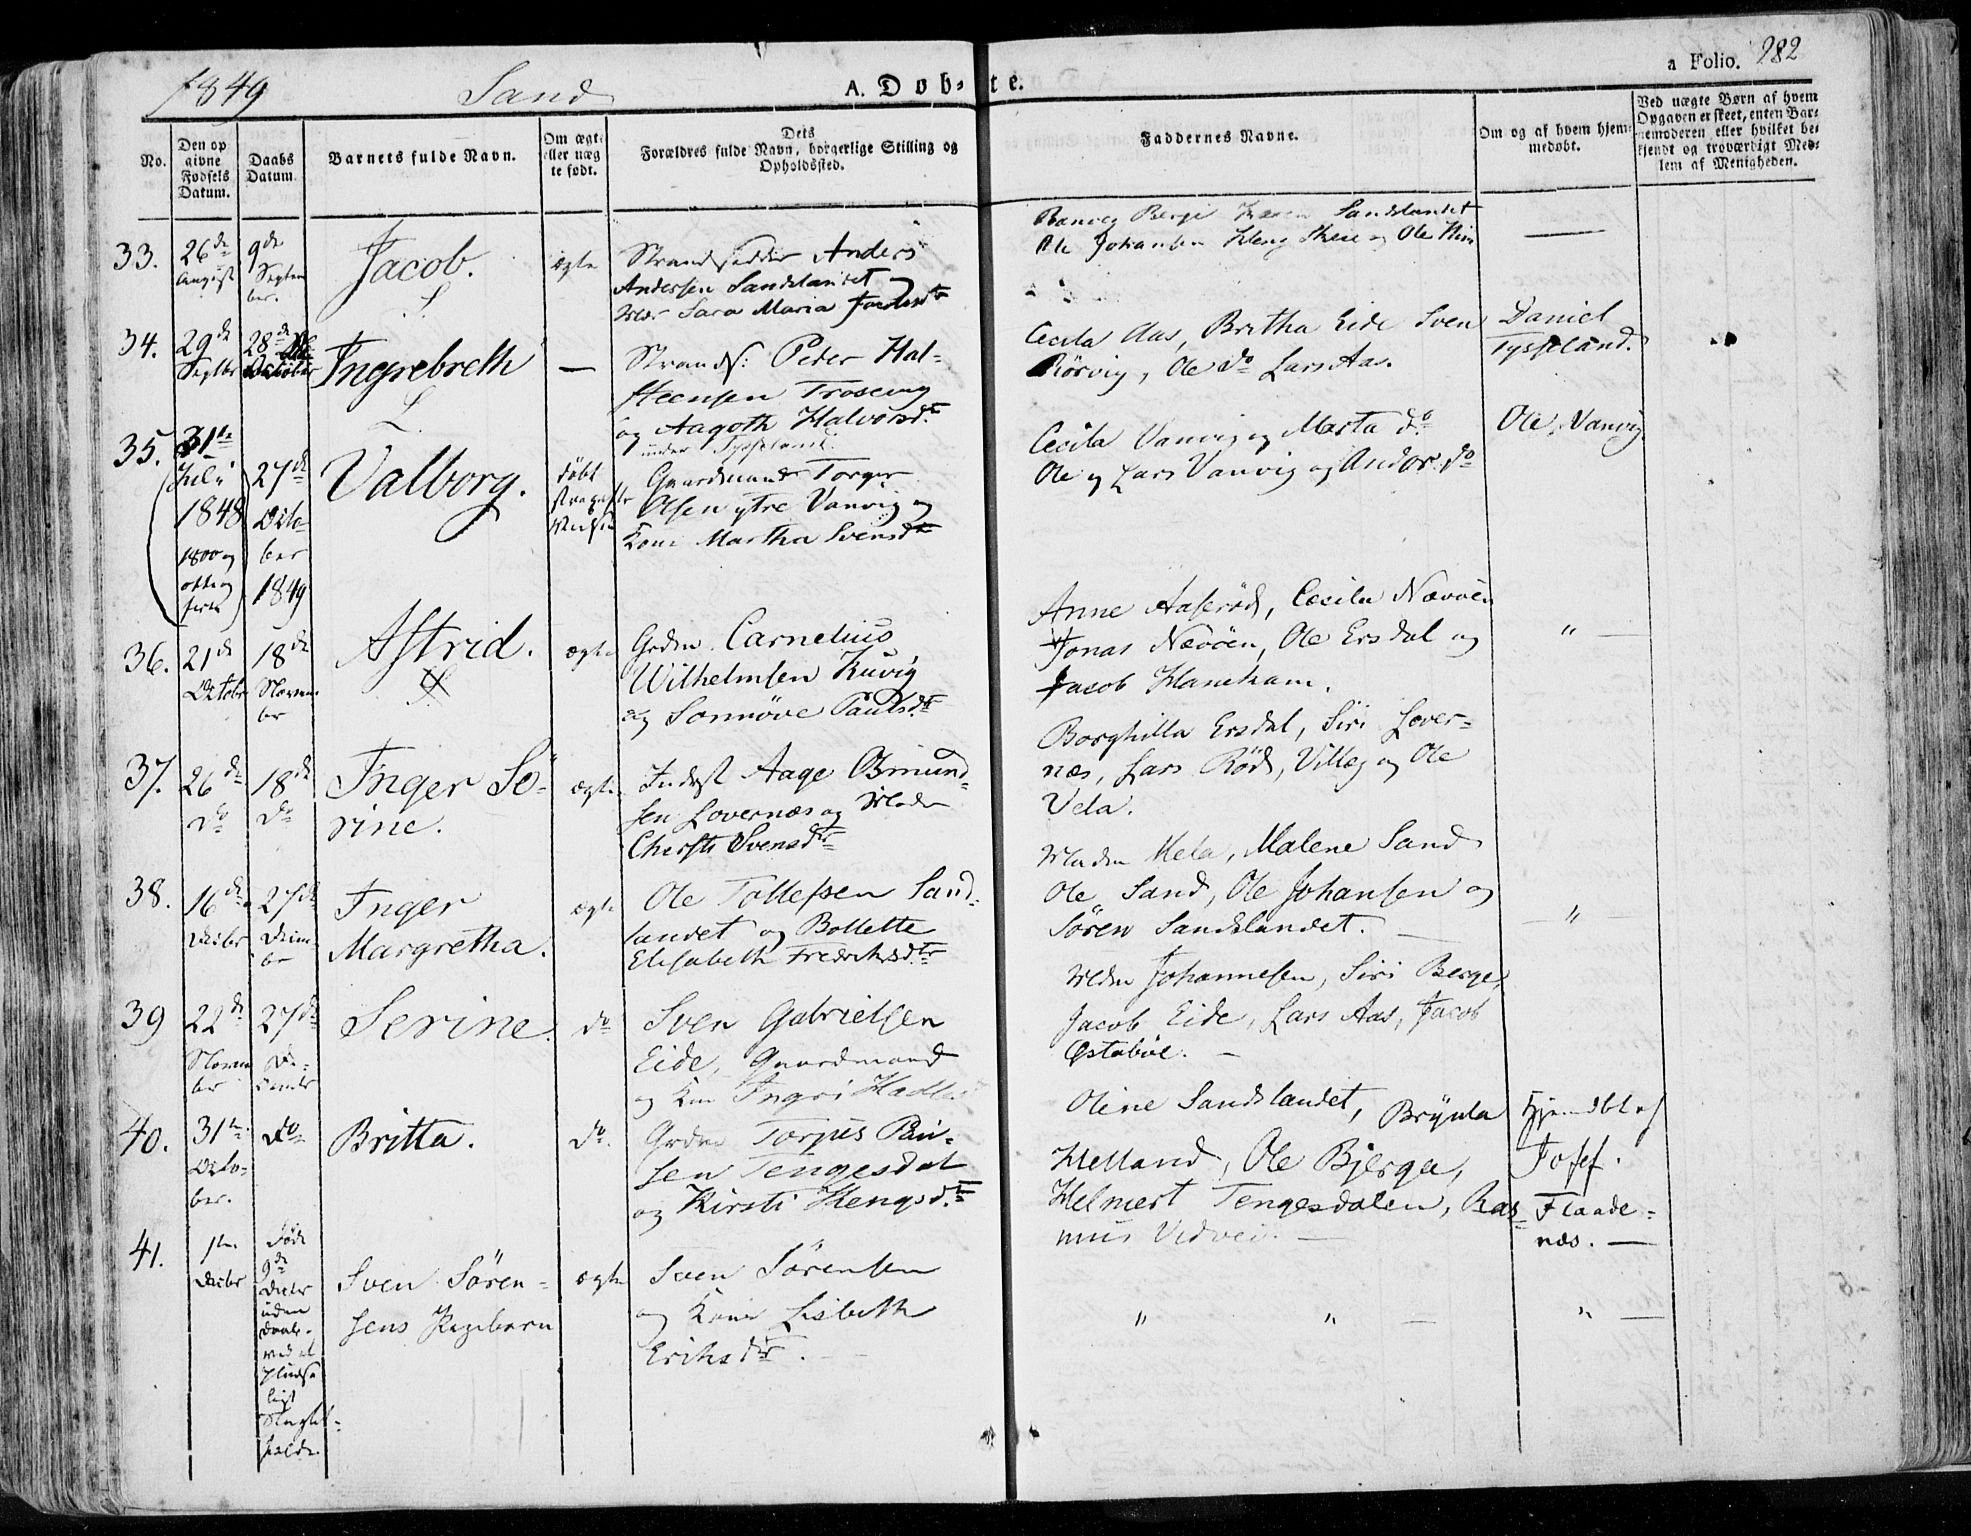 1849 Sand A. Døbte. a Folio. 282
No.
Den op
givne
Fødsels
Datum.
Daabs
Datum.
Barnets fulde Navn.
Om ægte
eller uæg
te født.
Dets
Forældres fulde Navn, borgerlige Stilling og
Opholdssted.
Faddernes Navne.
Om og af hvem hjem
medøbt.
Ved uægte Børn af hvem
Opgaven er skeet, enten Bar=
nemoderen eller hvilket be=
kjendt og troværdigt Med=
lem af Menigheden.
33. 26de August
9de Septem
ber.
Jacob.
ægte
Strandsidder Anders
Andersen Sandslandet og
Sara Maria
Ranveg Berge Sandslandet
Ole Johansen og Ole
34. 29de Septbr
28de October
Ingebreth
—
Strands: Peder Hal=
steensen
og Aagoth Halvorsdtr
under Tysseland
Cecila Aas, Britha Eide Sven
Rörvig, Ole do Lars Aas.
Daniel
Tysseland.
35. 31te
Juli
1848
1800 og
otte og
27de
Octo=
ber
1849
Valborg.
døbt
Gaardmand Torger
Olsen ytre Vanvig og
Kone Martha Svensdtr
Cecila Vanvig og Marta do
Ole og Lars Vanvig og Andor do
Ole Vanvig
36. 21de
Octobr
18de
Novem
ber
Astrid.
ægte
Grdm. Carnelius
Wilhelmsen
og Sonnöve Paulsdtr
Anne Aaseröd, Cecila Nævöen
Jonas Nævöen, Ole Ersdal og
Jacob
" —
37. 26de
do
18de
do
Inger Sö=
rine.
ægte
Inderst Aage Osmund=
sen Lovernæs og
Svensdtr
Borghilla Ersdal, Siri Lover=
næs, Lars Röd, og Ole
Vela.
38. 16de
Decbr
27de
Decem
ber
Inger
Margretha.
ægte
Ole Tollefsen Sand=
landet og Bollette
Elisabeth Fredriksdtr
Malene Sand
Ole Sand, Ole Johansen og
Sören Sandslandet. —
— "
39 22de
Novem
ber
27de
De=
cember
Serine.
do
Sven Gabrielsen
Eide, Gaardmand
og Kone Ingri
Johannesen, Siri Berge,
Jacob Eide, Lars Aas, Jacob
Østaböe. —
40. 31te
Octo=
ber.
do
Britta.
do.
Grdm Torjus
sen Tengesdal
og Kirsti
Oline Sandslandet, Brynla
Helland, Ole Bjerga,
Helmert Tengesdalen, Ras=
mus —
Hjemdbt af
Josef.
Flaade=
næs. —
41. 1te
Decbr
Döde
9de
Decbr
uden
Daab
ved et
pludse
ligt
Sven Sören=
sens Pigebarn
ægte
Sven Sörensen
og Kone Lisbeth
Eriksdtr.
" " —
" —